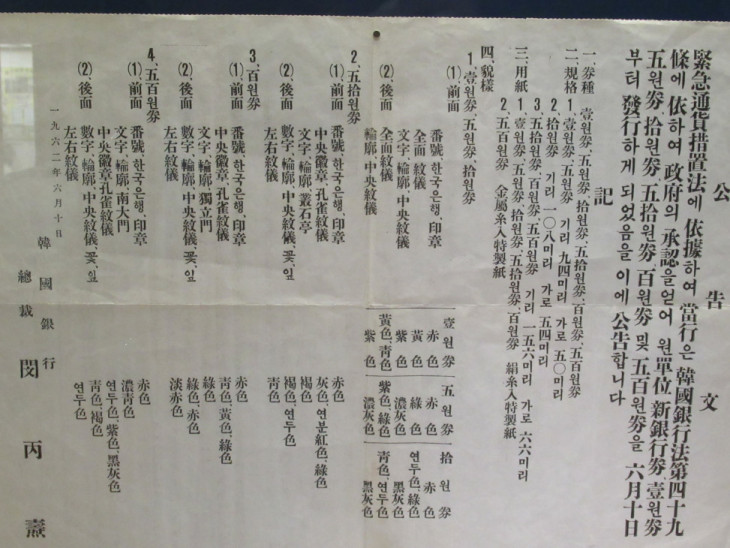 公告文
緊急通貨措置法에 依據하여 當行은 韓國銀行法第四十九
條에 依하여 政府의 承認을 얻어 원單位 新銀行券、壹원券
五원券、拾원券、五拾원券、百원券 및 五百원券을 六月十日
부터 發行하게 되었음을 이에 公告합니다
記
一、券種 壹원券、五원券、拾원券、五拾원券、百원券、五百원券
二、規格 1、壹원券、五원券 기리 九四미리 가로 五〇미리
2、拾원券 기리 一〇八미리 가로 五四미리
3、五拾원券、百원券、五百원券 기리 一五六미리 가로 六六미리
三、用紙 1、壹원券、五원券、拾원券、五拾원券、百원券 絹糸入特製紙
2、五百원券 金属糸入特製紙
四、貌様
1、壹원券、五원券、拾원券
壹원券 五원券 拾원券
(1)、前面 番號、한국은행、印章 赤色 赤色 赤色
全面 紋儀 黃色 綠色 연두色、綠色
文字、輪廓 紫色 濃灰色 黑灰色
(2)、後面 全面紋儀 黃色、靑色 紫色、綠色 靑色、연두色
輪廓、中央紋儀 紫色 濃灰色 黑灰色
2、五拾원券
(1)、前面 番號、한국은행、印章 赤色
中央徽章、孔雀紋儀 灰色、연분紅色、綠色
文字、輪廓、叢石亭 褐色
(2)、後面 數字、輪廓、中央紋儀、꽃、잎 褐色、연두色
左右紋儀 靑色
3、百원券
(1)、前面 番號、한국은행、印章 赤色
中央徽章、孔雀紋儀 靑色、黃色、綠色
文字、輪廓、獨立門 綠色
(2)、後面 數字、輪廓、中央紋儀、꽃、잎 綠色、赤色
左右紋儀 淡赤色
4、五百원券
(1)、前面 番號、한국은행、印章 赤色
文字、輪廓、南大門 濃靑色
中央徽章、孔雀紋儀 연두色、紫色、黑灰色
(2)、後面 數字、輪廓、中央紋儀、꽃、잎 靑色、褐色
左右紋儀 연두色
一九六二年六月十日
韓國銀行
總裁 閔丙燾